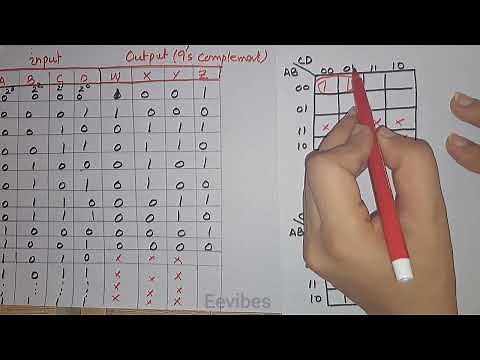 input Output (9's complement)
A B C D W X Y Z
2³ 2² 2¹ 2⁰
0 0 0 0 1 0 0 1
0 0 0 1 1 0 0 0
0 0 1 0 0 1 1 1
0 0 1 1 0 1 1 0
0 1 0 0 0 1 0 1
0 1 0 1 0 1 0 0
0 1 1 0 0 0 1 1
0 1 1 1 0 0 1 0
1 0 0 0 0 0 0 1
1 0 0 1 0 0 0 0
1 0 1 0 x x x
1 0 1 1 x x x
x x x
1 1 1 1 x x x
CD
AB 00 01 11 10
00 1 1
01
11 x x x
10
AB
11
10
Eevibes